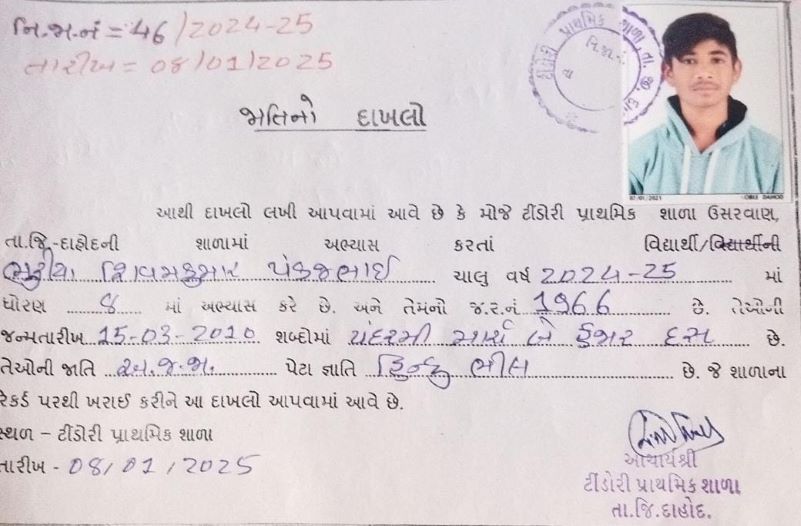 નિ.જા.નં = 46/2024-25
તારીખ = 08/01/2025
ટીંડોરી પ્રાથમિક શાળા, તા. જી.
જાતિનો દાખલો
07/01/2021
આથી દાખલો લખી આપવામાં આવે છે કે મોજે ટીંડોરી પ્રાથમિક શાળા ઉસરવાણ,
તા.જિ-દાહોદની શાળામાં અભ્યાસ કરતાં વિદ્યાર્થી/વિદ્યાર્થીની
ભુરીયા શિવમકુમાર પંકજભાઈ ચાલુ વર્ષ 2024-25 માં
ધોરણ 8 માં અભ્યાસ કરે છે. અને તેમનો જ.ર.નં 1966 છે. તેઓની
જન્મતારીખ 15-03-2010 શબ્દોમાં પંદરમી માર્ચ બે હજાર દસ છે.
તેઓની જાતિ અ.જ.જા. પેટા જ્ઞાતિ હિન્દુ ભીલ છે. જે શાળાના
રેકર્ડ પરથી ખરાઈ કરીને આ દાખલો આપવામાં આવે છે.
સ્થળ – ટીંડોરી પ્રાથમિક શાળા
તારીખ - 08/01/2025
આચાર્યશ્રી
ટીંડોરી પ્રાથમિક શાળા
તા.જિ.દાહોદ.